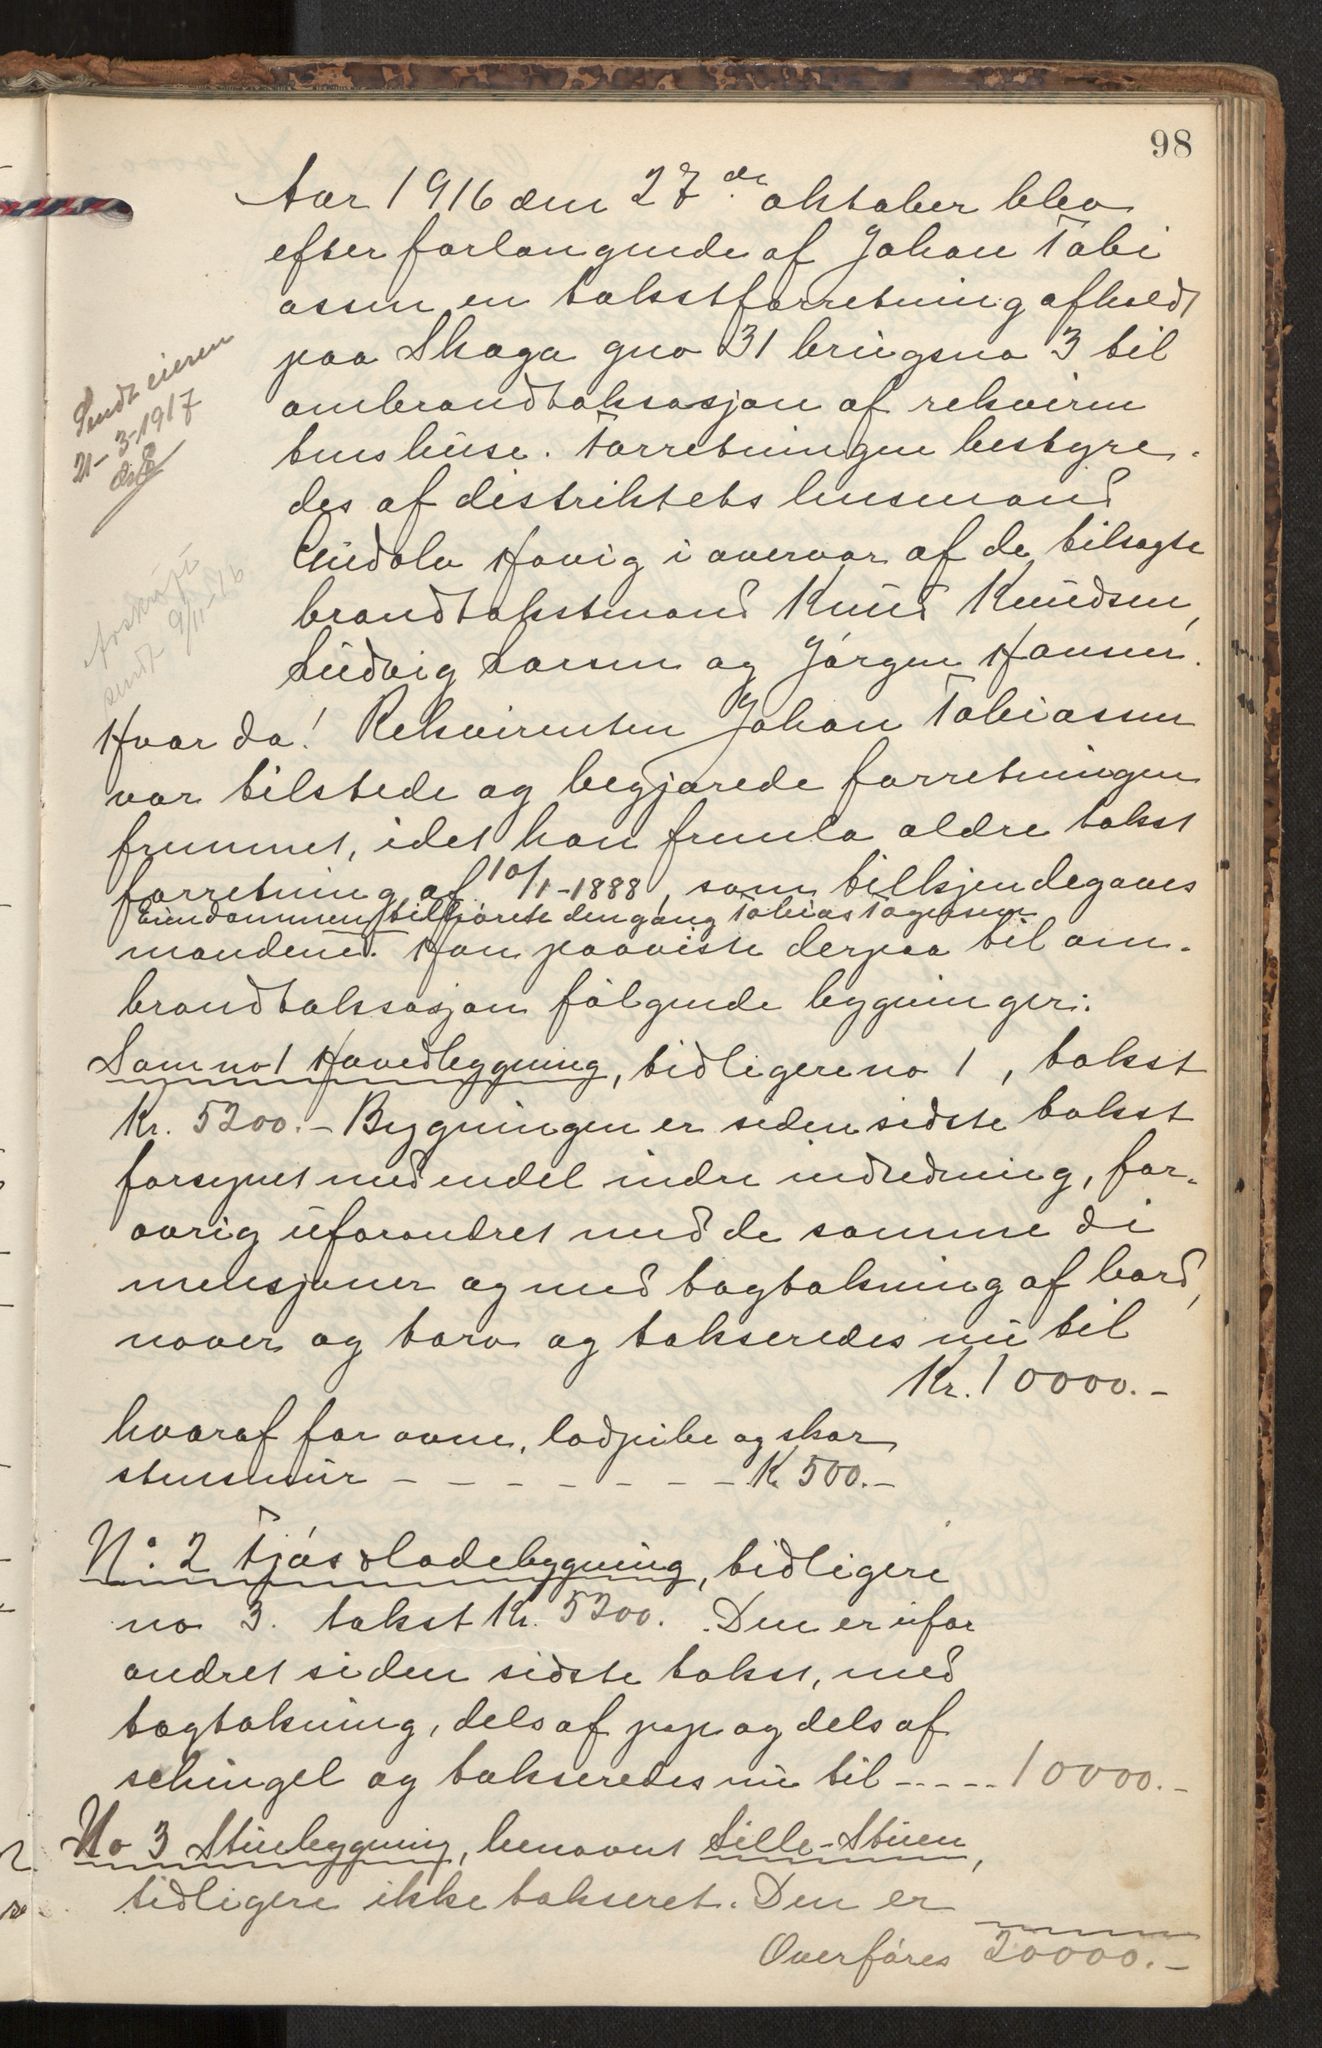 98
Aar 1916 den 27de oktober blev
efter forlangende af Johan Tobi
assen en takstforretning afholdt
paa Skaga gno 31 brugsno 3 til
ombrandtaksasjon af rekviren
tens huse. Forretningen bestyre-
des af distriktets lensmand
Gudolv Havig i overvær af de tilsagte
brandtakstmænd Knud Knudsen,
Ludvig Larsen og Jørgen Hansen.
Sendt eieren
21-3-1917
Avskrift
sendt 9/11-16
Hvor da! Rekvirenten Johan Tobiassen
var tilstede og begjærede forretningen
fremmet, idet han fremla ældre takst
forretning af 10/1-1888, som tilkjendegaves
Eiendommen tilhørte dengang Tobias Tagesen
mændene. Han paaviste derpaa til om-
brandtaksasjon følgende bygninger:
Som no 1 Hovedbygning, tidligere no 1, takst
Kr. 5200.- Bygningen er siden sidste takst
forsynet med endel indre indredning, for-
øvrig uforandret med de samme di
mensjoner og med tagtækning af bord,
næver og torv og takseredes nu til
Kr. 10000.-
hvoraf for ovne, lodpibe og skor
stensmur - - - - - - - K 500.-
No. 2 Fjøs & ladebygning, tidligere
no 3. takst Kr. 5200. Den er ufor
andret siden sidste takst, med
tagtækning, dels af pap og dels af
schingel og takseredes nu til ----- 10000.-
No 3 Stuebygning, benævnt Lille-Stuen,
tidligere ikke takseret. Den er
Overføres 20000.-